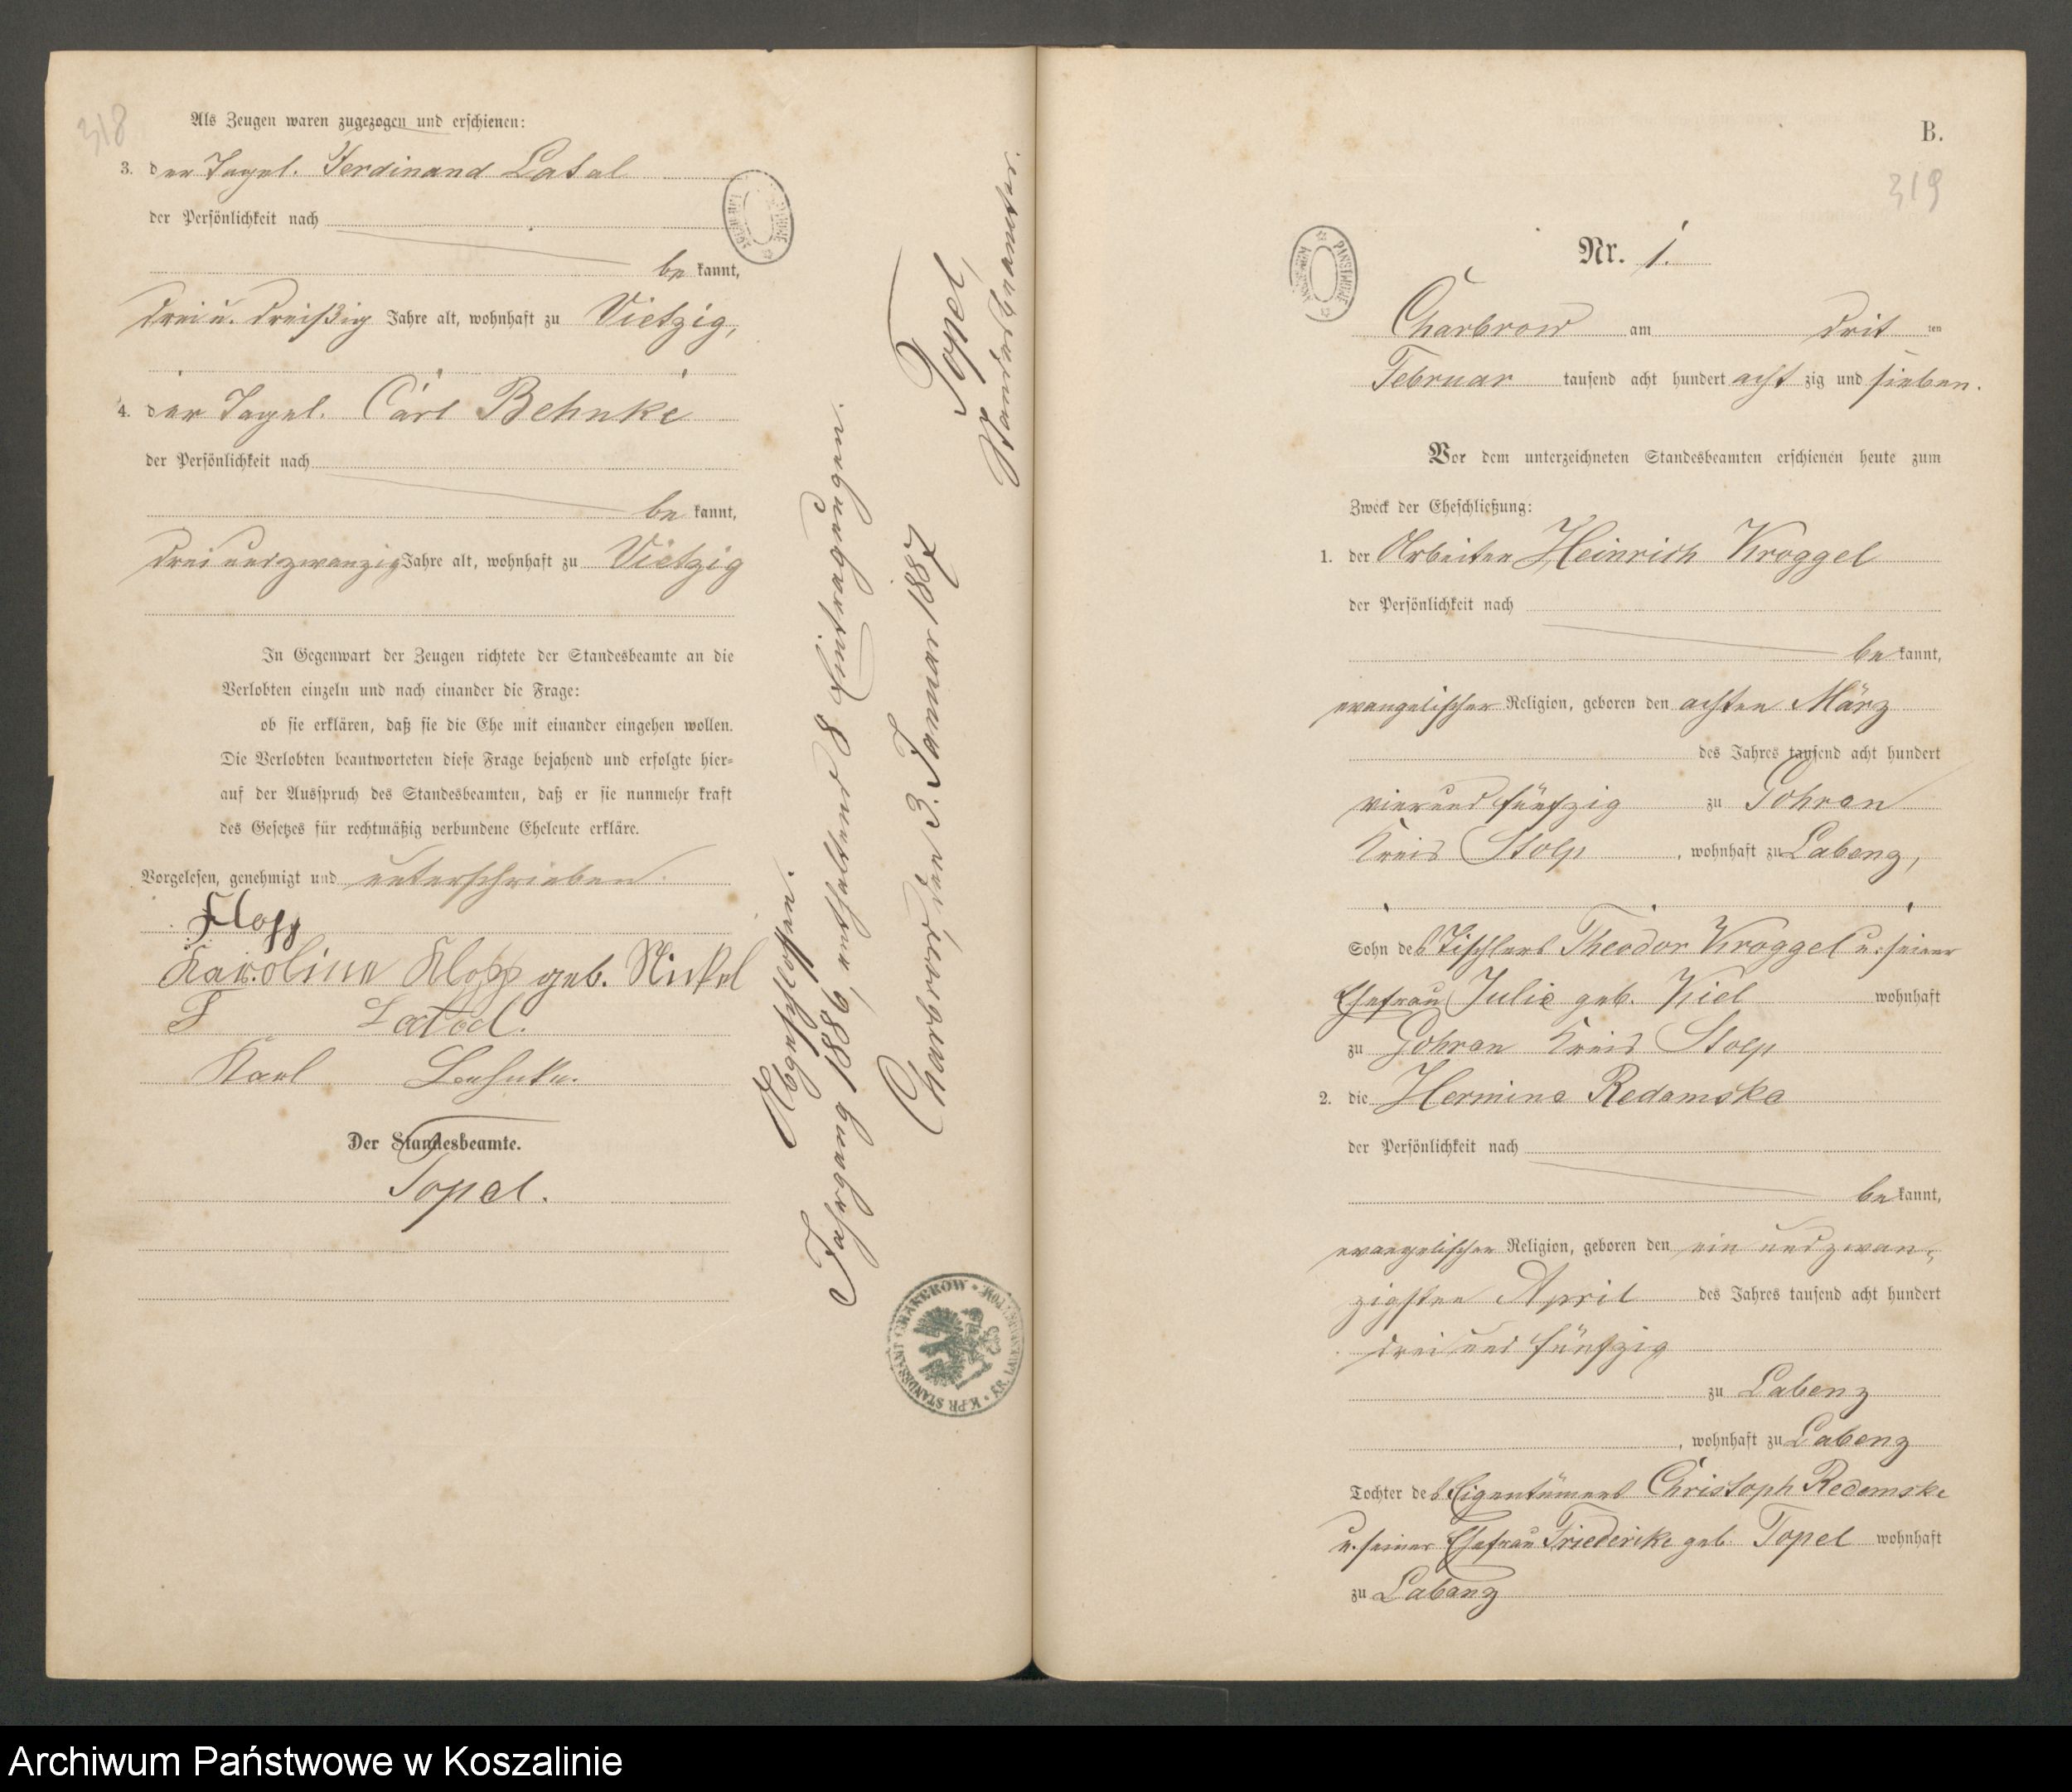 318
Als Zeugen waren zugezogen und erschienen:
3. der Tagel. Ferdinand Latal
der Persönlichkeit nach
be kannt,
drei u. dreißig Jahre alt, wohnhaft zu Vietzig,
4. der Tagel. Carl Behnke
der Persönlichkeit nach
be kannt,
drei und zwanzig Jahre alt, wohnhaft zu Vietzig
In Gegenwart der Zeugen richtete der Standesbeamte an die
Verlobten einzeln und nach einander die Frage:
ob sie erklären, daß sie die Ehe mit einander eingehen wollen.
Die Verlobten beantworteten diese Frage bejahend und erfolgte hier-
auf der Ausspruch des Standesbeamten, daß er sie nunmehr kraft
des Gesetzes für rechtmäßig verbundene Eheleute erkläre.
Vorgelesen, genehmigt und unterschrieben.
Klopp
Karoline Klopp geb. Nickel
F
Karl Behnke.
Der Standesbeamte.
Topel.
Abgeschlossen.
Jahrgang 1886, enthaltend 8 Eintragungen.
Charbrow, den 3. Januar 1887
Topel,
Standesbeamter.
B.
319
Nr. 1.
Charbrow am drit ten
Februar tausend acht hundert acht zig und sieben.
Vor dem unterzeichneten Standesbeamten erschienen heute zum
Zweck der Eheschließung:
1. der Arbeiter Heinrich Kroggel
der Persönlichkeit nach
be kannt,
evangelischer Religion, geboren den achten März
des Jahres tausend acht hundert
vierund fünfzig zu Gohren
Kreis Stolp, wohnhaft zu Labenz,
Sohn des Tischlers Theodor Kroggel u. seiner
Ehefrau Julie geb. Kiel wohnhaft
zu Gohren Kreis Stolp
2. die Hermine Redamske
der Persönlichkeit nach
be kannt,
evangelischer Religion, geboren den ein und zwan-
zigsten April des Jahres tausend acht hundert
drei und fünfzig
zu Labenz
, wohnhaft zu Labenz
Tochter des Eigentümers Christoph Redamske
u. seiner Ehefrau Friederike geb. Topel wohnhaft
zu Labenz
Archiwum Państwowe w Koszalinie